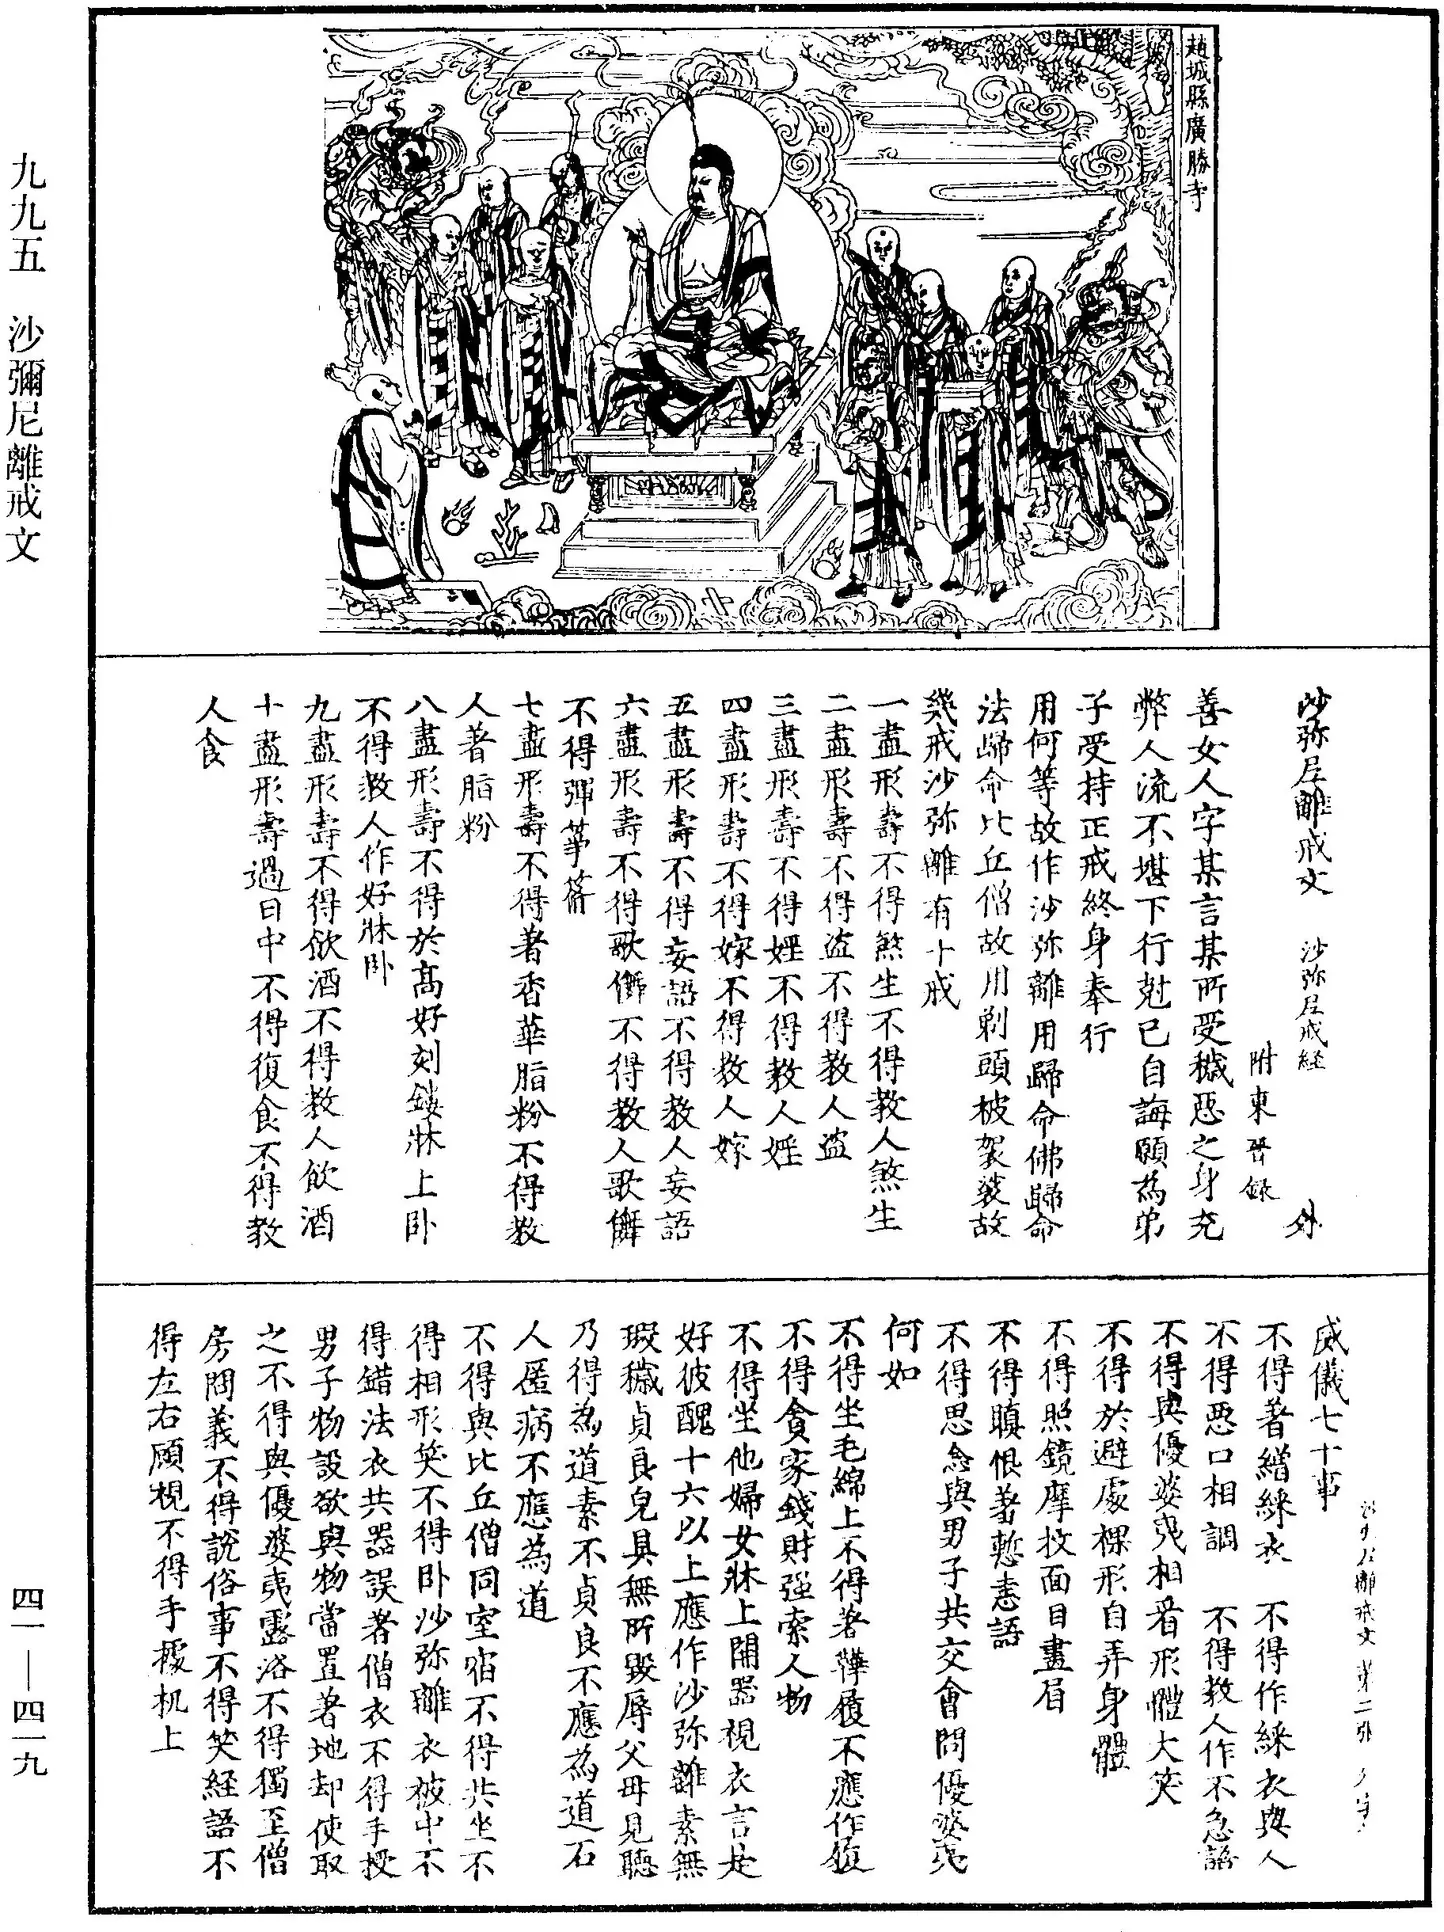 趙城縣廣勝寺
九九五 沙彌尼離戒文
四一—四一九
沙弥尼離戒文 沙弥尼戒経
附東晉録 外
善女人字某言某所受穢惡之身充
弊人流不堪下行尅已自誨願為弟
子受持正戒終身奉行
用何等故作沙弥離用歸命佛歸命
法歸命比丘僧故用剃頭被袈裟故
幾戒沙弥離有十戒
一盡形壽不得煞生不得教人煞生
二盡形壽不得盗不得教人盗
三盡形壽不得婬不得教人婬
四盡形壽不得嫁不得教人嫁
五盡形壽不得妄語不得教人妄語
六盡形壽不得歌儛不得教人歌儛
不得彈箏笛
七盡形壽不得著香華脂粉不得教
人著脂粉
八盡形壽不得於髙好刻鏤牀上卧
不得教人作好牀卧
九盡形壽不得飲酒不得教人飲酒
十盡形壽過日中不得復食不得教
人食
沙弥尼離戒文 第二張 外字
威儀七十事
不得著繒綵衣 不得作綵衣與人
不得惡口相調 不得教人作不急語
不得與優婆夷相看形體大笑
不得於避處裸形自弄身體
不得照鏡摩抆面目畫眉
不得瞋恨著慙恚語
不得思念與男子共交會問優婆夷
何如
不得坐毛綿上不得著鞾履不應作領
不得貪家錢財强索人物
不得坐他婦女牀上開器視衣言是
好彼醜十六以上應作沙弥離素無
瑕穢貞良皃具無所毀辱父母見聽
乃得為道素不貞良不應為道石
人匿病不應為道
不得與比丘僧同室宿不得共坐不
得相形笑不得卧沙弥離衣被中不
得錯法衣共器誤著僧衣不得手授
男子物設欲與物當置著地却使取
之不得與優婆夷露浴不得獨至僧
房問義不得說俗事不得笑経語不
得左右顧視不得手據机上